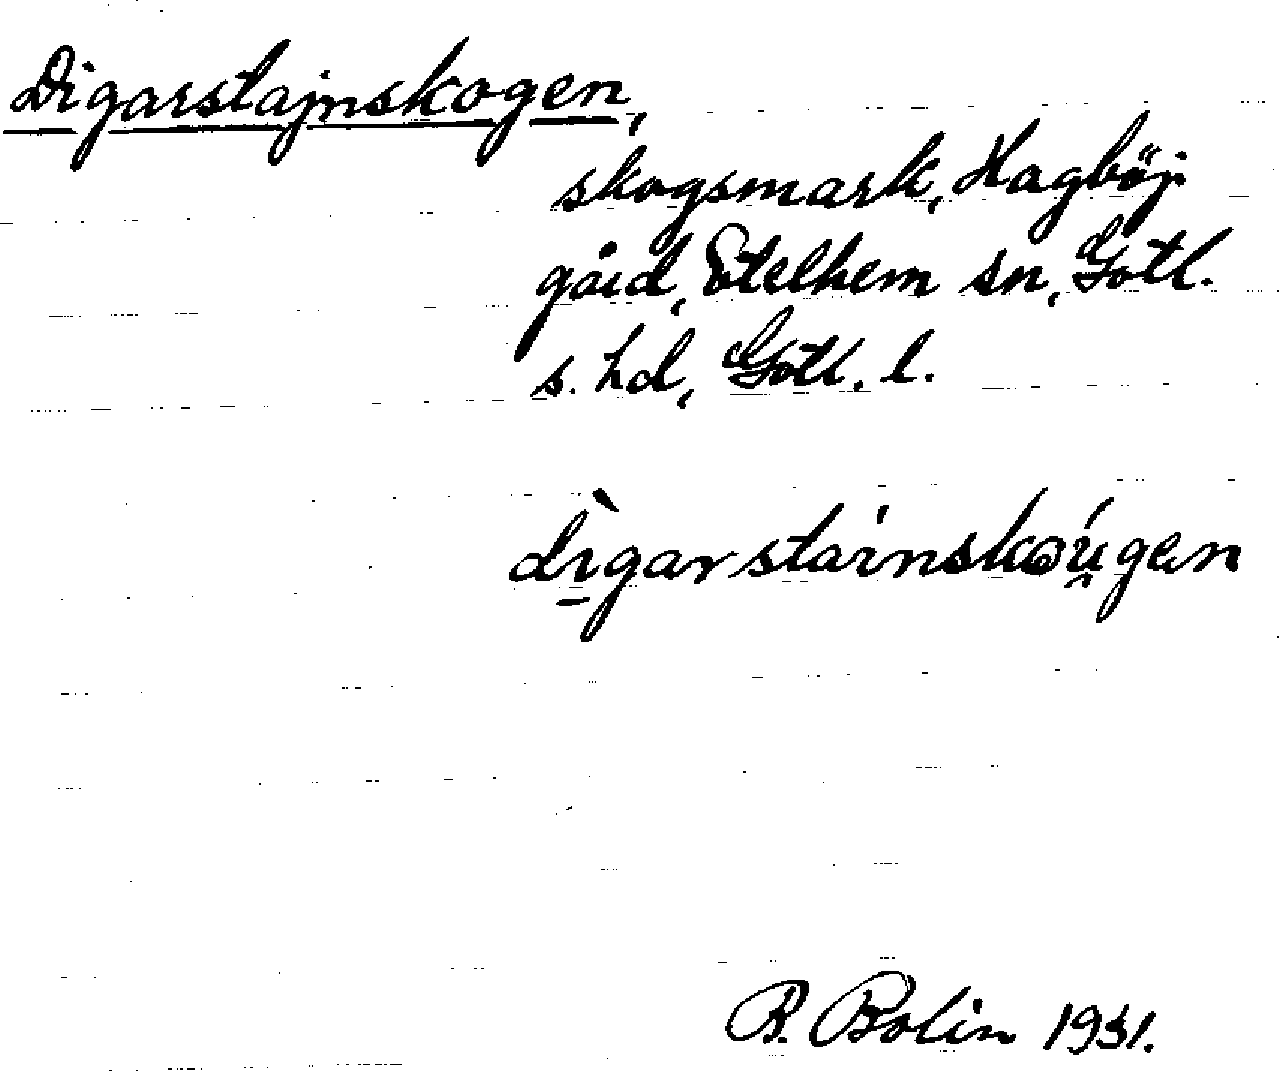 Digarstajnskogen,
skogsmark, Hagböj
gård, Etelhem sn, Gotl.
s. hd, Gotl. l.
dı̱̀garstáinskωú̯gen
R. Bolin 1931.